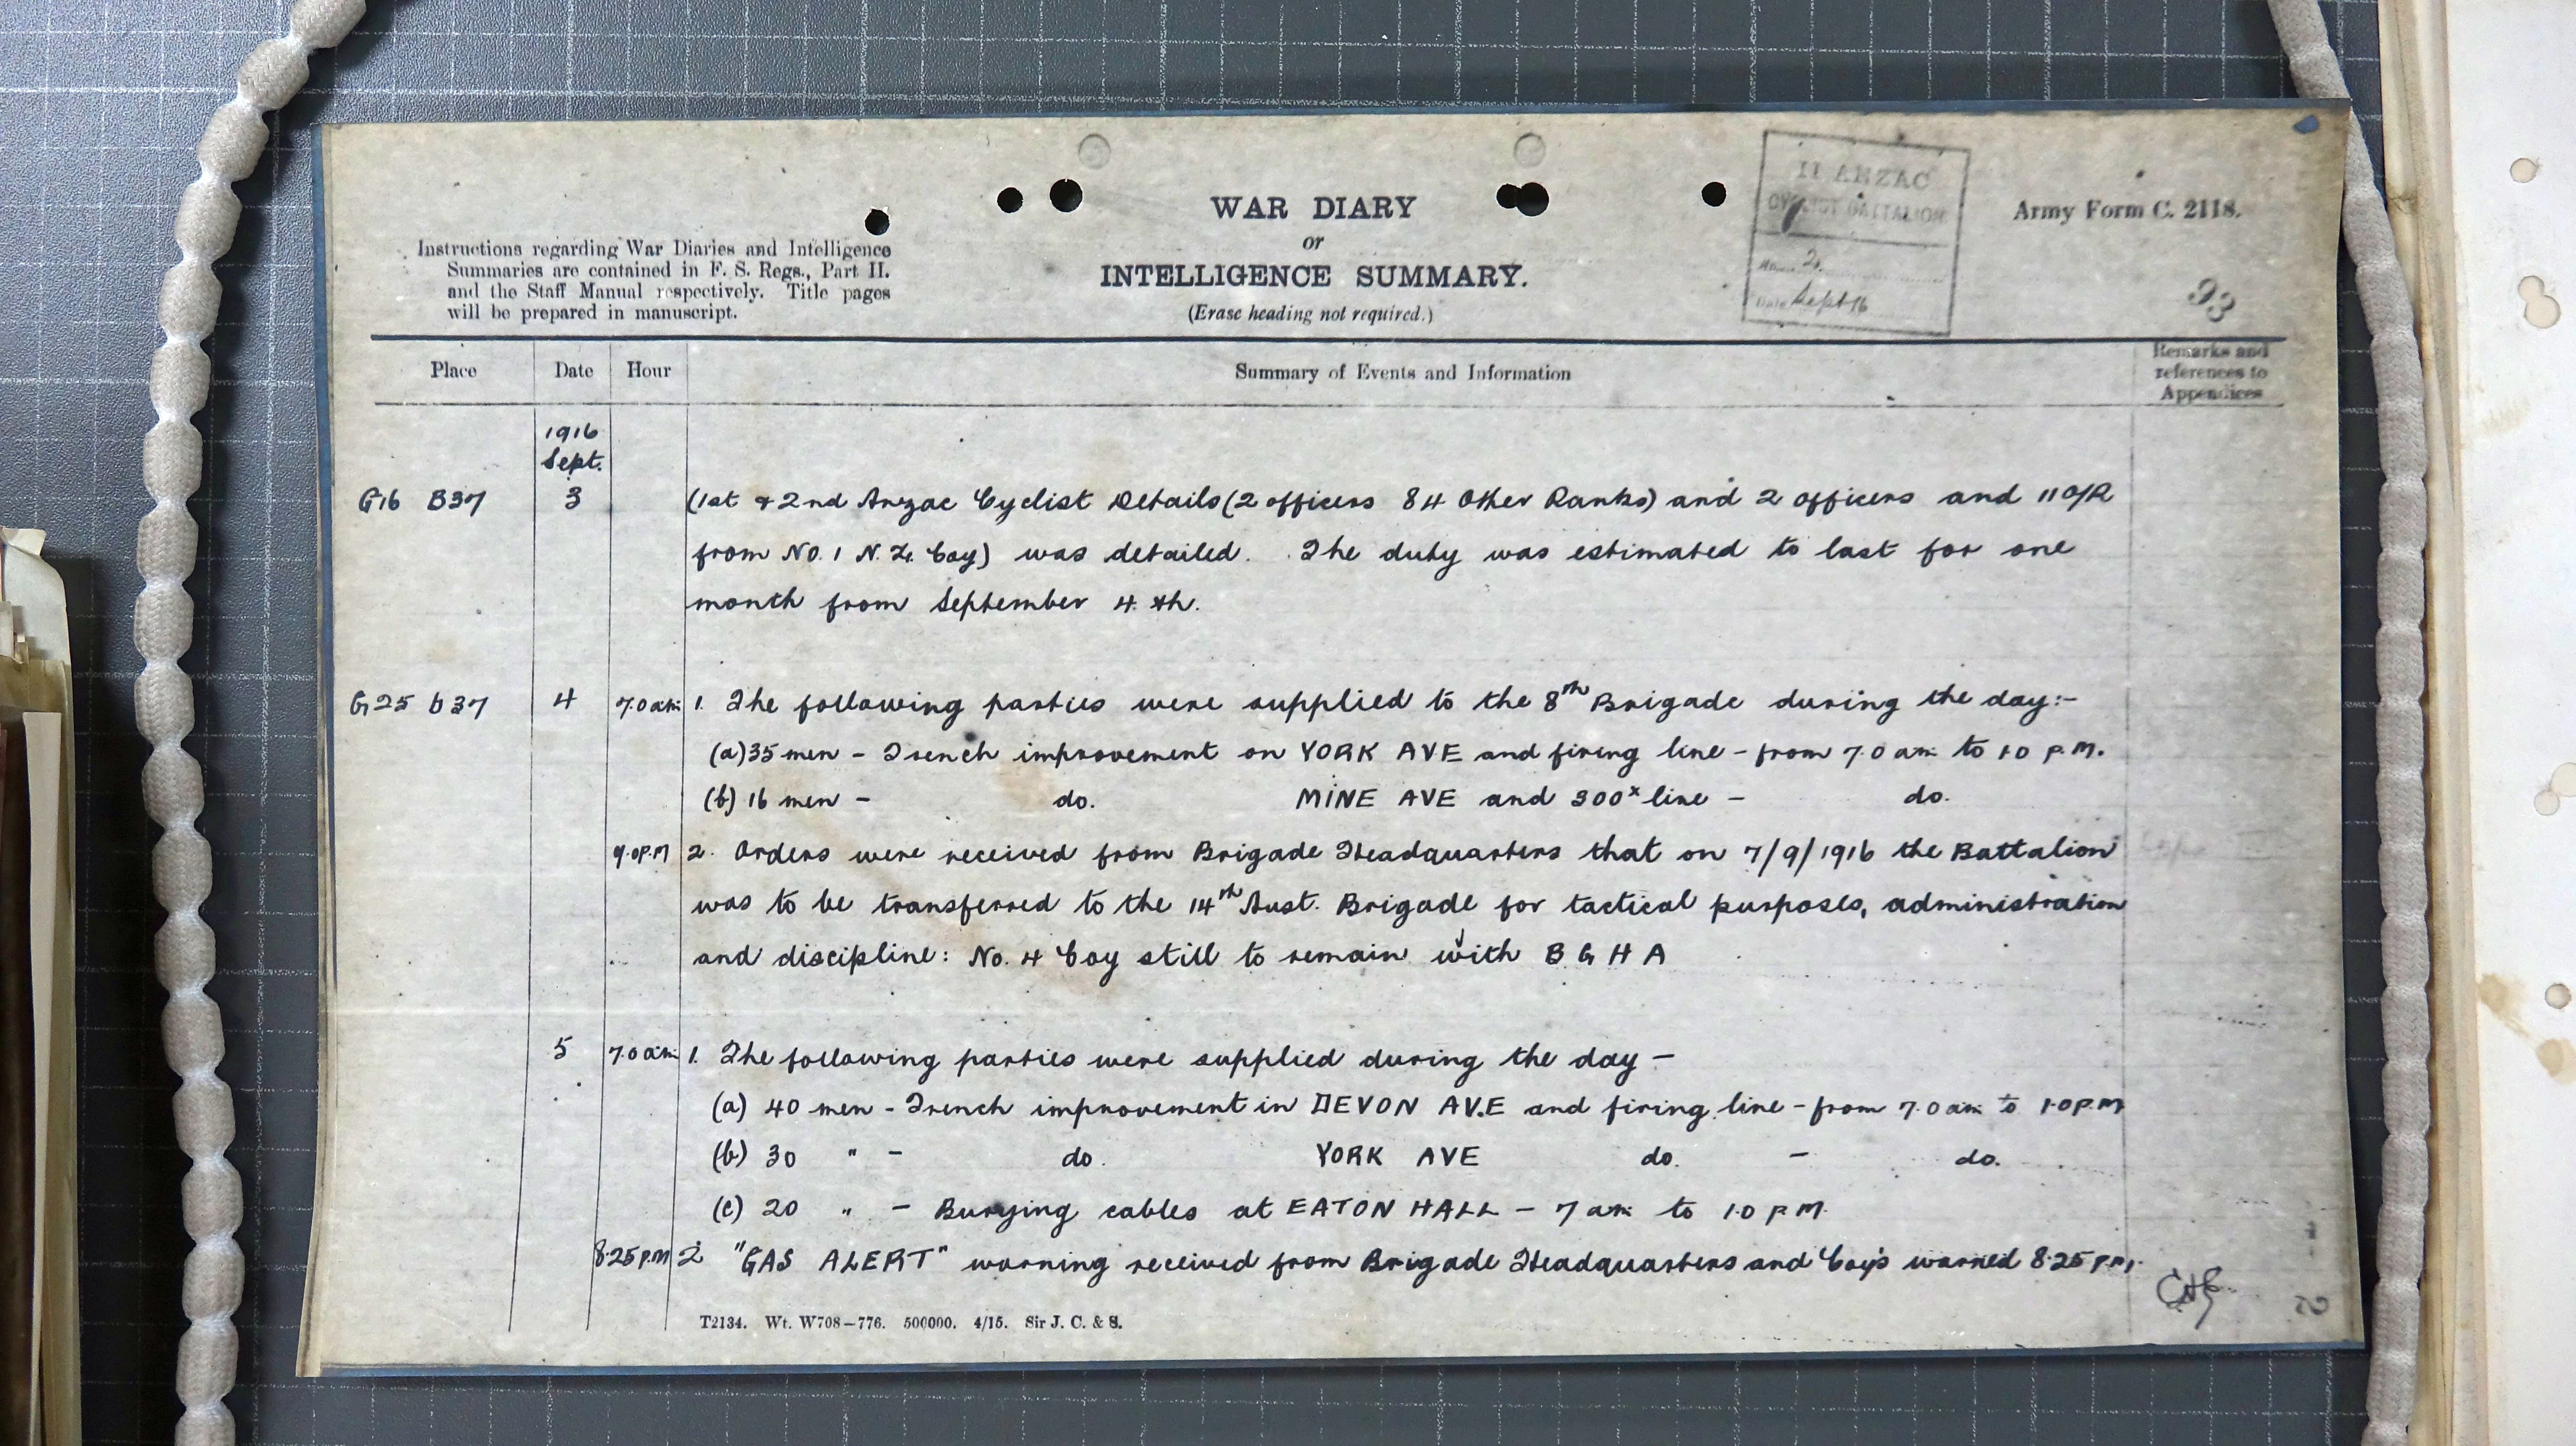 WAR DIARY
or
INTELLIGENCE SUMMARY.
(Erase heading not required.)
Instructions regarding War Diaries and Intelligence
Summaries are contained in F. S. Regs., Part II.
and the Staff Manual respectively. Title pages
will be prepared in manuscript.
II ANZAC
CYCLIST BATTALION
2.
Date Sept 16
Army Form C. 2118.
93
Place Date Hour Summary of Events and Information Remarks and
references to
Appendices
1916
Sept.
G16 B37 3 (1st & 2nd Anzac Cyclist Details (2 officers 84 Other Ranks) and 2 officers and 11 O/R
from No. 1 N. Z. Coy) was detailed. The duty was estimated to last for one
month from September 4 th.
G25 b37 4 7.0 am 1. The following parties were supplied to the 8th Brigade during the day:-
(a) 35 men - Trench improvement on YORK AVE and firing line - from 7.0 am to 1.0 P.M.
(b) 16 men - do. MINE AVE and 300x line - do.
9.0 P.M 2. Orders were received from Brigade Headquarters that on 7/9/1916 the Battalion
was to be transferred to the 14th Aust. Brigade for tactical purposes, administration
and discipline: No. 4 Coy still to remain with B G H A
5 7.0 am 1. The following parties were supplied during the day -
(a) 40 men - Trench improvement in DEVON AVE and firing line - from 7.0 am to 1.0 P.M
(b) 30 " - do. YORK AVE do. - do.
(c) 20 " - Burying cables at EATON HALL - 7 am to 1.0 P.M.
8.25 P.M 2 "GAS ALERT" warning received from Brigade Headquarters and Coy's warned 8.25 P.M.
T2134. Wt. W708-776. 500000. 4/15. Sir J. C. & S.